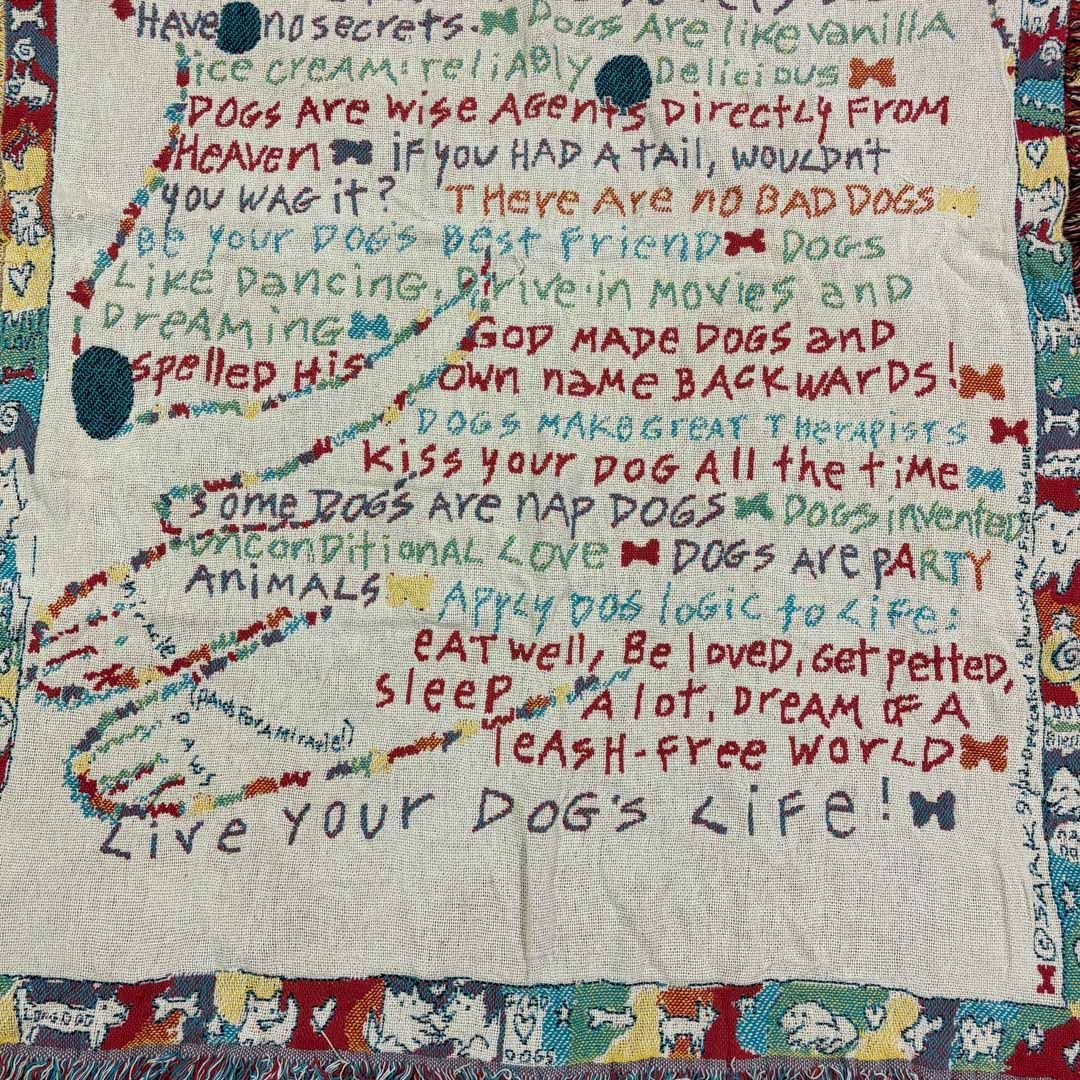 Have no secrets. Dogs Are like vanillA
ice creAM: reliAbly Delicious
DOGS Are wise Agents Directly From
HeAven if you HAD A tAil, woulDn't
you wAG it? THere Are no BAD DOGS
Be your DoG's Best Friend DOGS
Like Dancing, Drive-in Movies anD
DreAMinG
GOD MADe DOGS anD
spelleD His own naMe BACKwArDS!
DOGS MAKe Great THerApists
Kiss your DOG All the tiMe
some DOGS Are nAp DOGS Dogs invented
unconDitionAL Love DOGS Are pARTY
AniMALS Apply DOG loGic to Life:
eAT well, Be loveD, Get petteD,
sleep A lot, DreAM oF A
leASH-Free worLD
Live your DOG's LiFe!
Miracle
(paws For A Miracle!)
PAWS
LonG DOG
DOGS